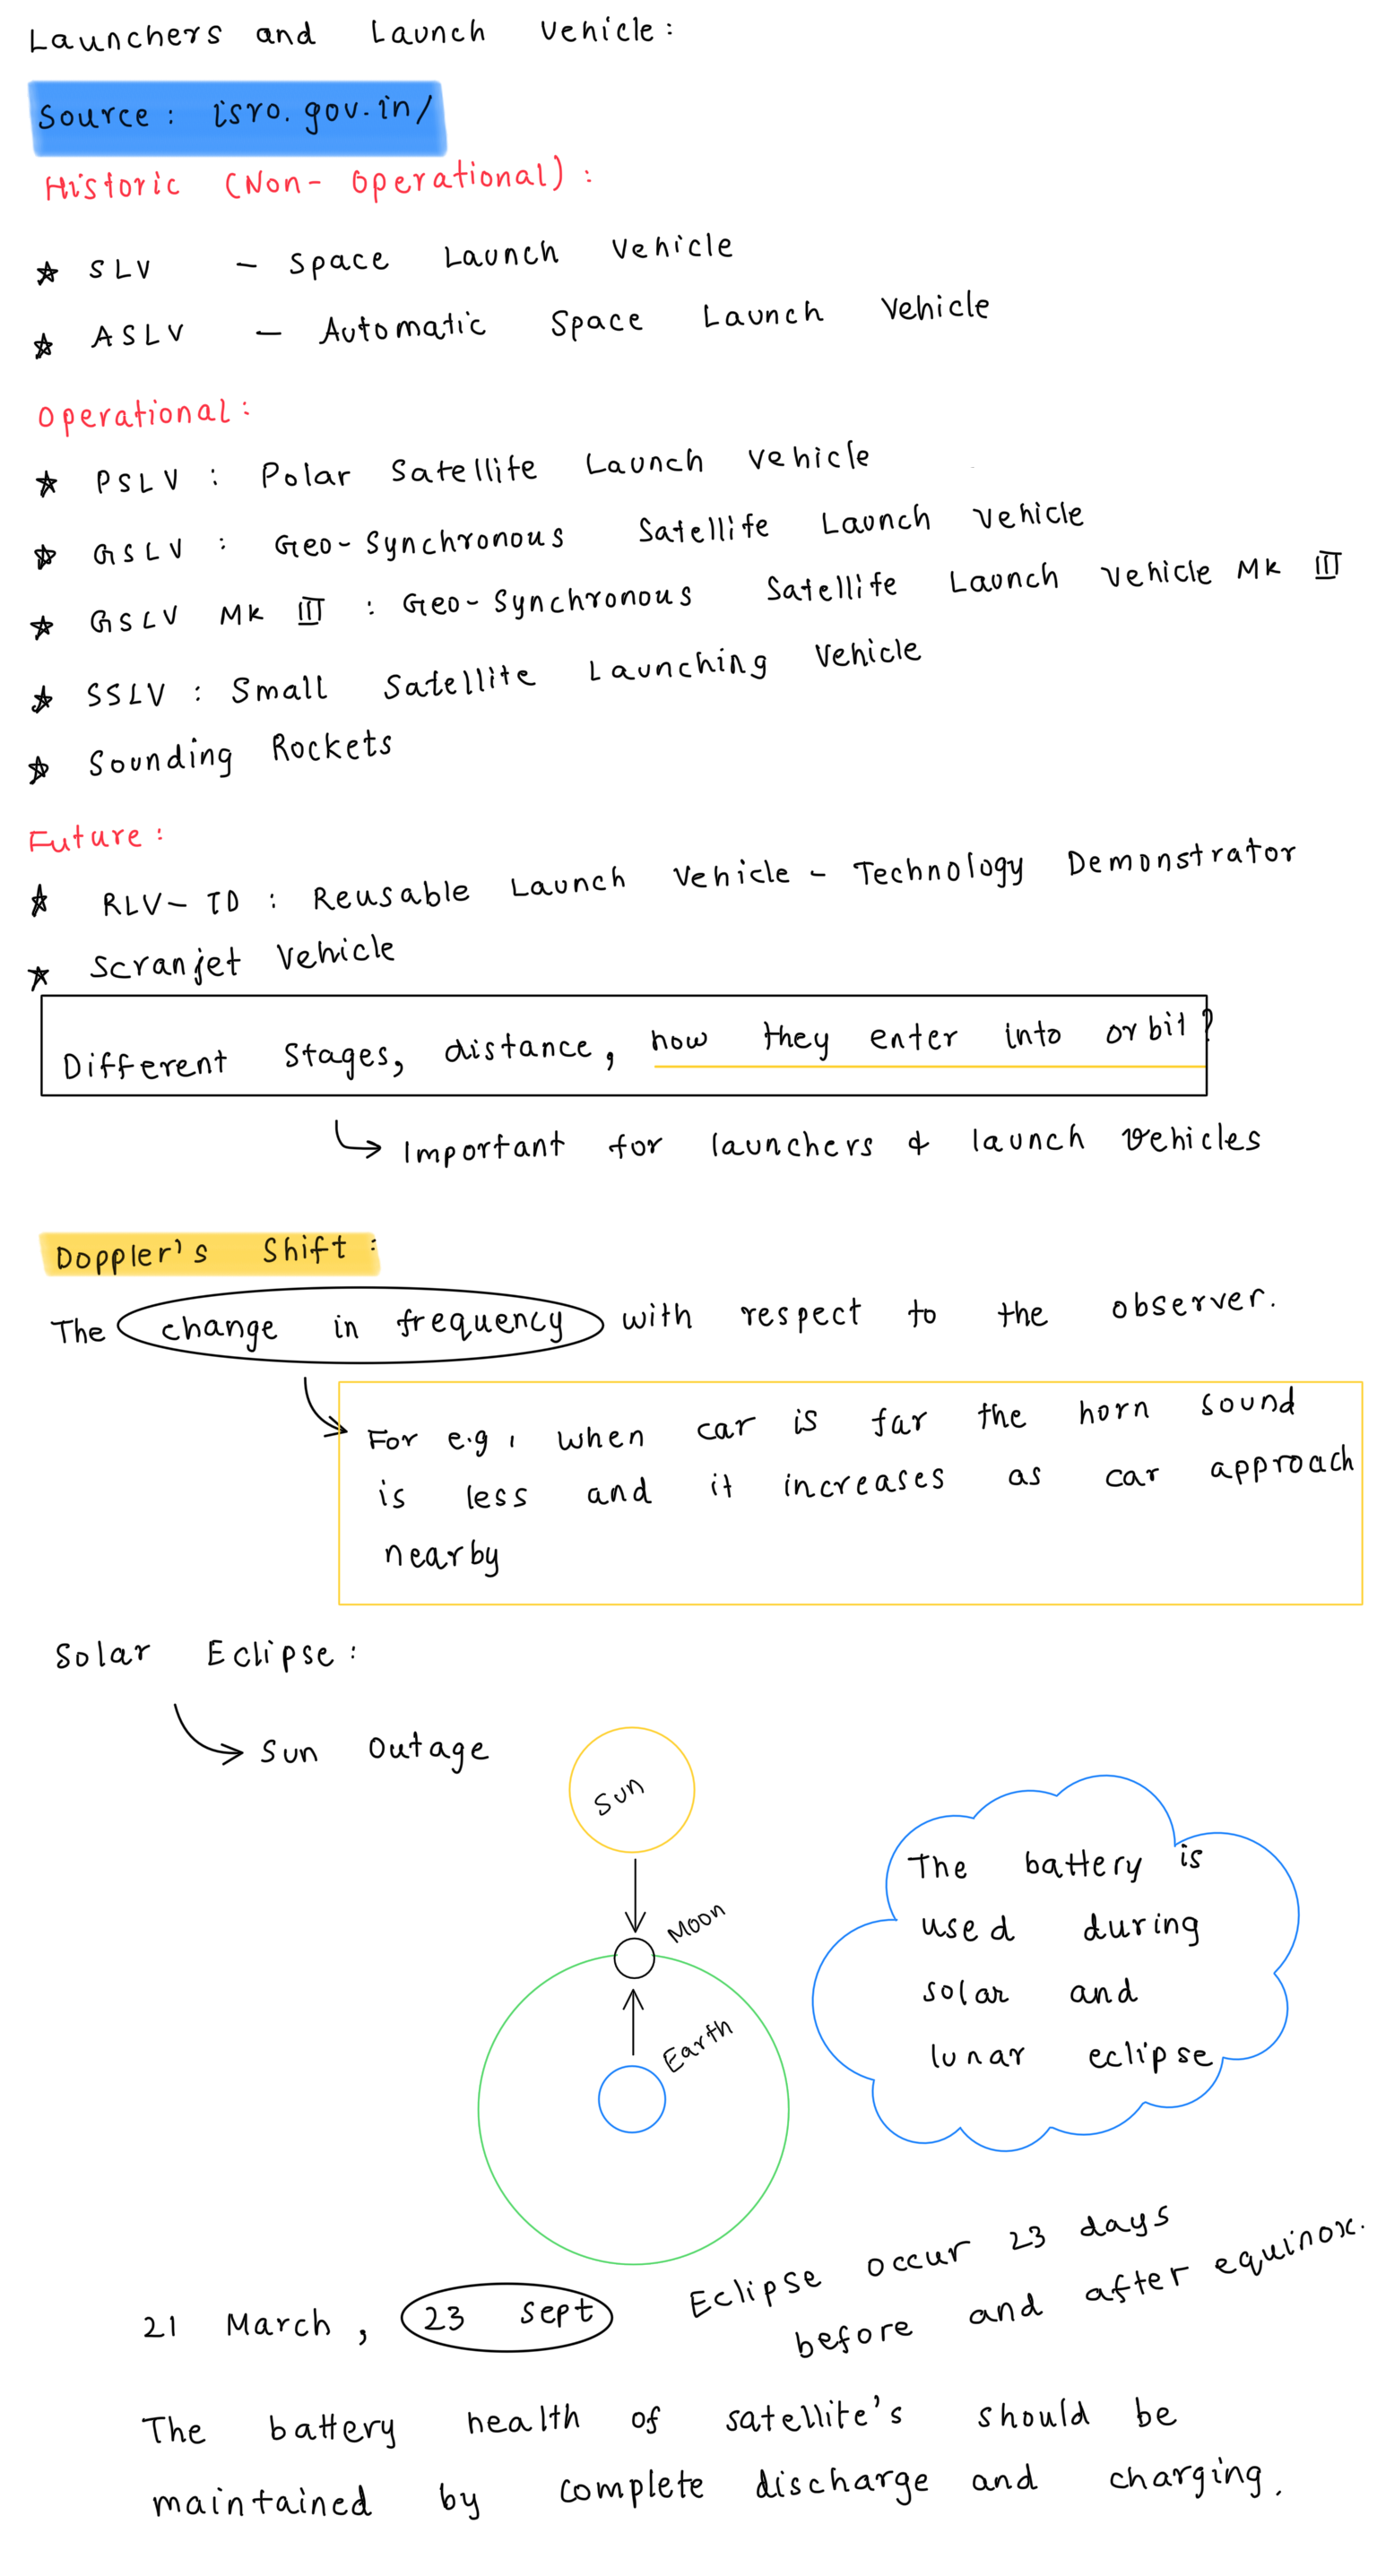 Launchers and Launch Vehicle:
Source: isro.gov.in/
Historic (Non- Operational):
SLV - Space Launch Vehicle
ASLV - Automatic Space Launch Vehicle
Operational:
PSLV : Polar Satellite Launch Vehicle
GSLV : Geo-Synchronous Satellite Launch Vehicle
GSLV Mk III : Geo-Synchronous Satellite Launch Vehicle Mk III
SSLV : Small Satellite Launching Vehicle
Sounding Rockets
Future:
RLV-TD : Reusable Launch Vehicle - Technology Demonstrator
Scranjet Vehicle
Different Stages, distance, how they enter into orbit?
Important for launchers & launch vehicles
Doppler's Shift:
The change in frequency with respect to the observer.
For e.g, when car is far the horn sound
is less and it increases as car approach
nearby
Solar Eclipse:
Sun Outage
Sun
Moon
Earth
The battery is
used during
solar and
lunar eclipse
21 March, 23 Sept
Eclipse occur 23 days
before and after equinox.
The battery health of satellite's should be
maintained by complete discharge and charging.